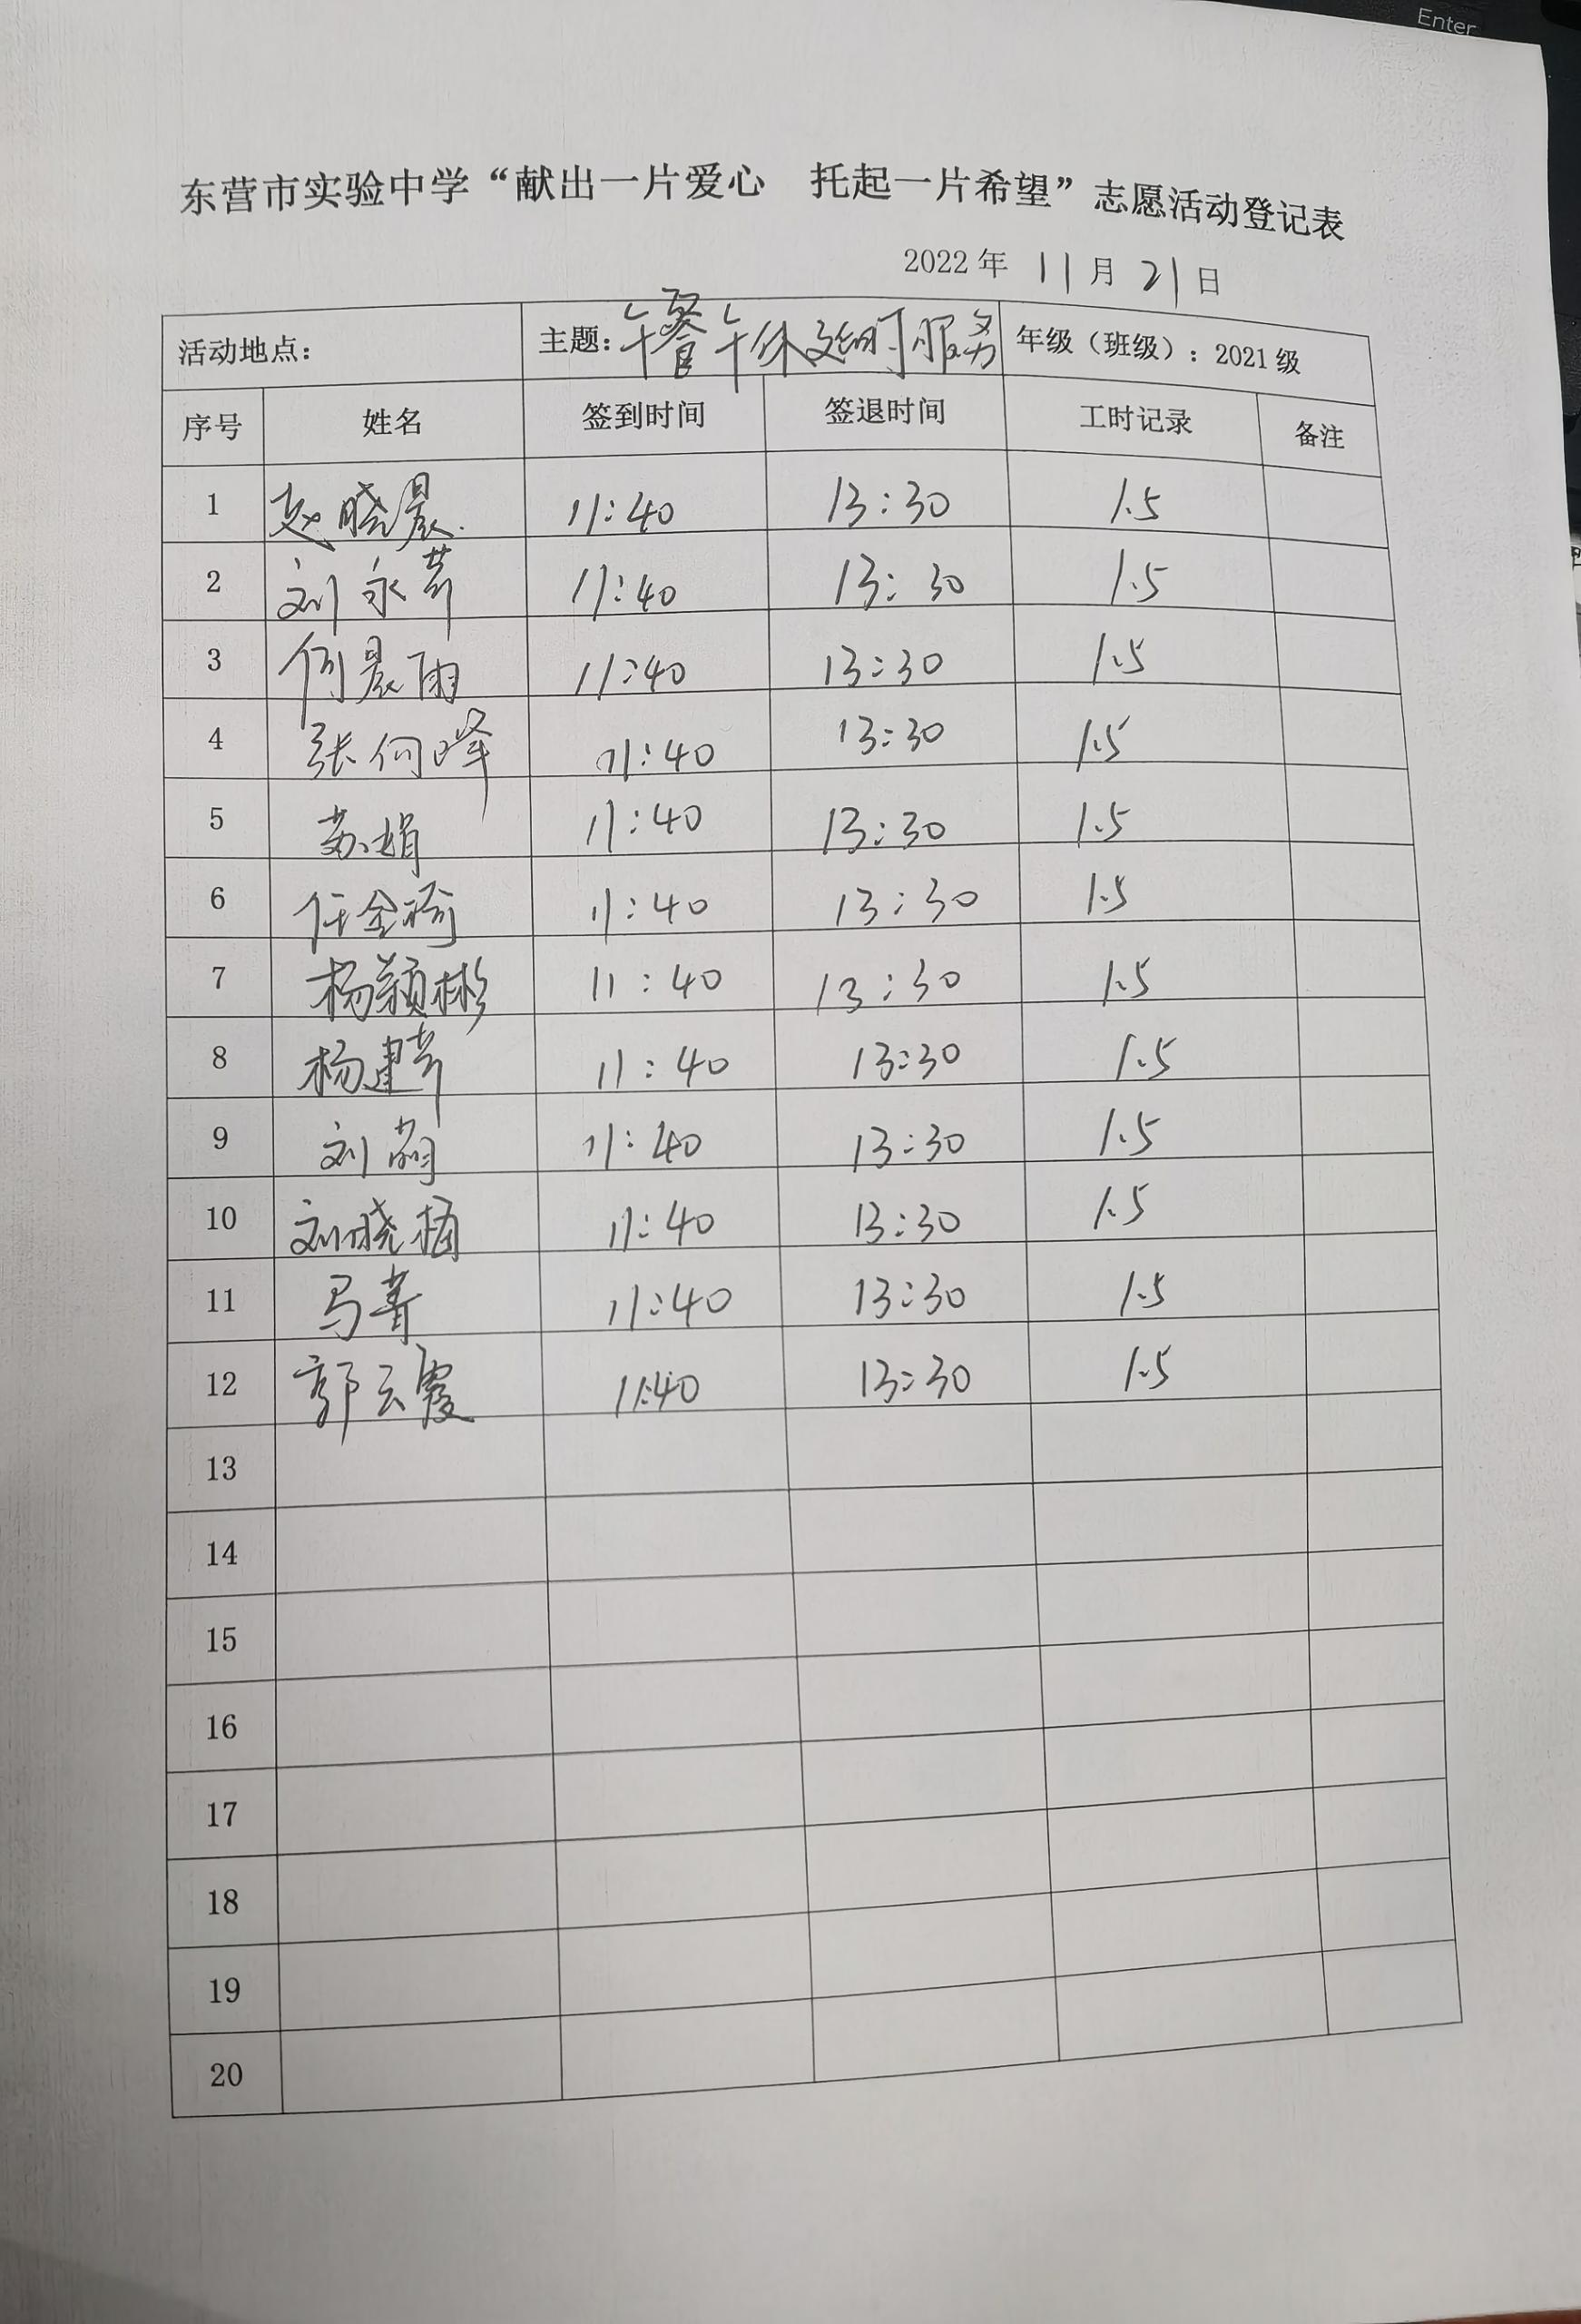 Enter
东营市实验中学“献出一片爱心 托起一片希望”志愿活动登记表
2022年 11月 21日
活动地点： 主题：午餐午休延时服务 年级（班级）：2021级
序号 姓名 签到时间 签退时间 工时记录 备注
1 赵晓晨 11:40 13:30 1.5
2 刘永芹 11:40 13:30 1.5
3 何晨雨 11:40 13:30 1.5
4 张何峰 11:40 13:30 1.5
5 苏娟 11:40 13:30 1.5
6 任金 11:40 13:30 1.5
7 杨颖彬 11:40 13:30 1.5
8 杨建芹 11:40 13:30 1.5
9 刘萌 11:40 13:30 1.5
10 刘晓梅 11:40 13:30 1.5
11 马菁 11:40 13:30 1.5
12 郭云霞 11:40 13:30 1.5
13
14
15
16
17
18
19
20